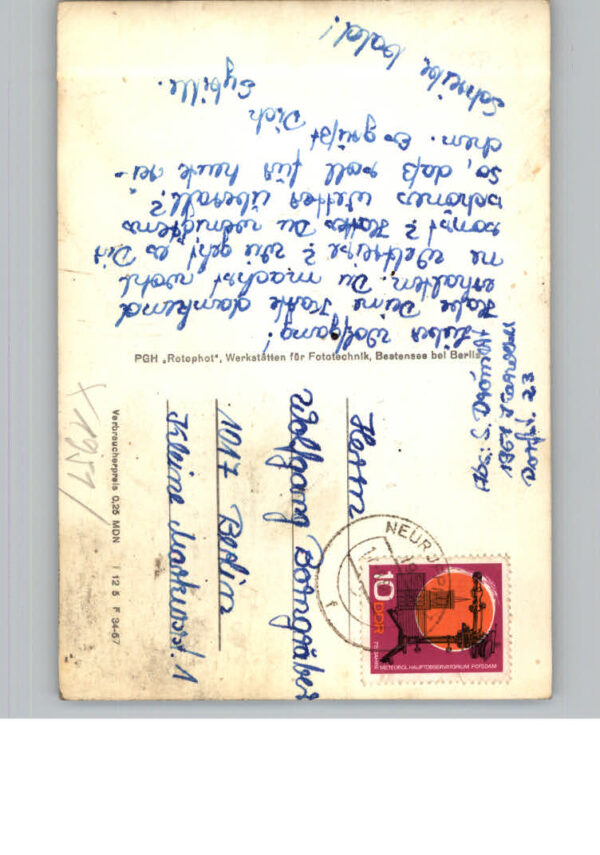 Lieber Wolfgang!
Habe Deine Karte dankend
erhalten. Du machst wohl
ne Weltreise? Wie geht es Dir
sonst? Hattes Du wenigstens
schönes Wetter überall?
So, daß soll für heute rei-
chen. Es grüßt
Dich
Sybille.
Schreibe bald!
PGH „Rotophot", Werkstätten für Fototechnik, Bestensee bei Berlin
Abs: S.
1951
Dorfstr. 23
Herrn
Wolfgang Borngräber
1017 Berlin
Kleine Markusst. 1
Verbraucherpreis 0,25 MDN I 12 5 F 34-67
X 1951/
10 DDR
75 JAHRE METEOROL. HAUPTOBSERVATORIUM POTSDAM